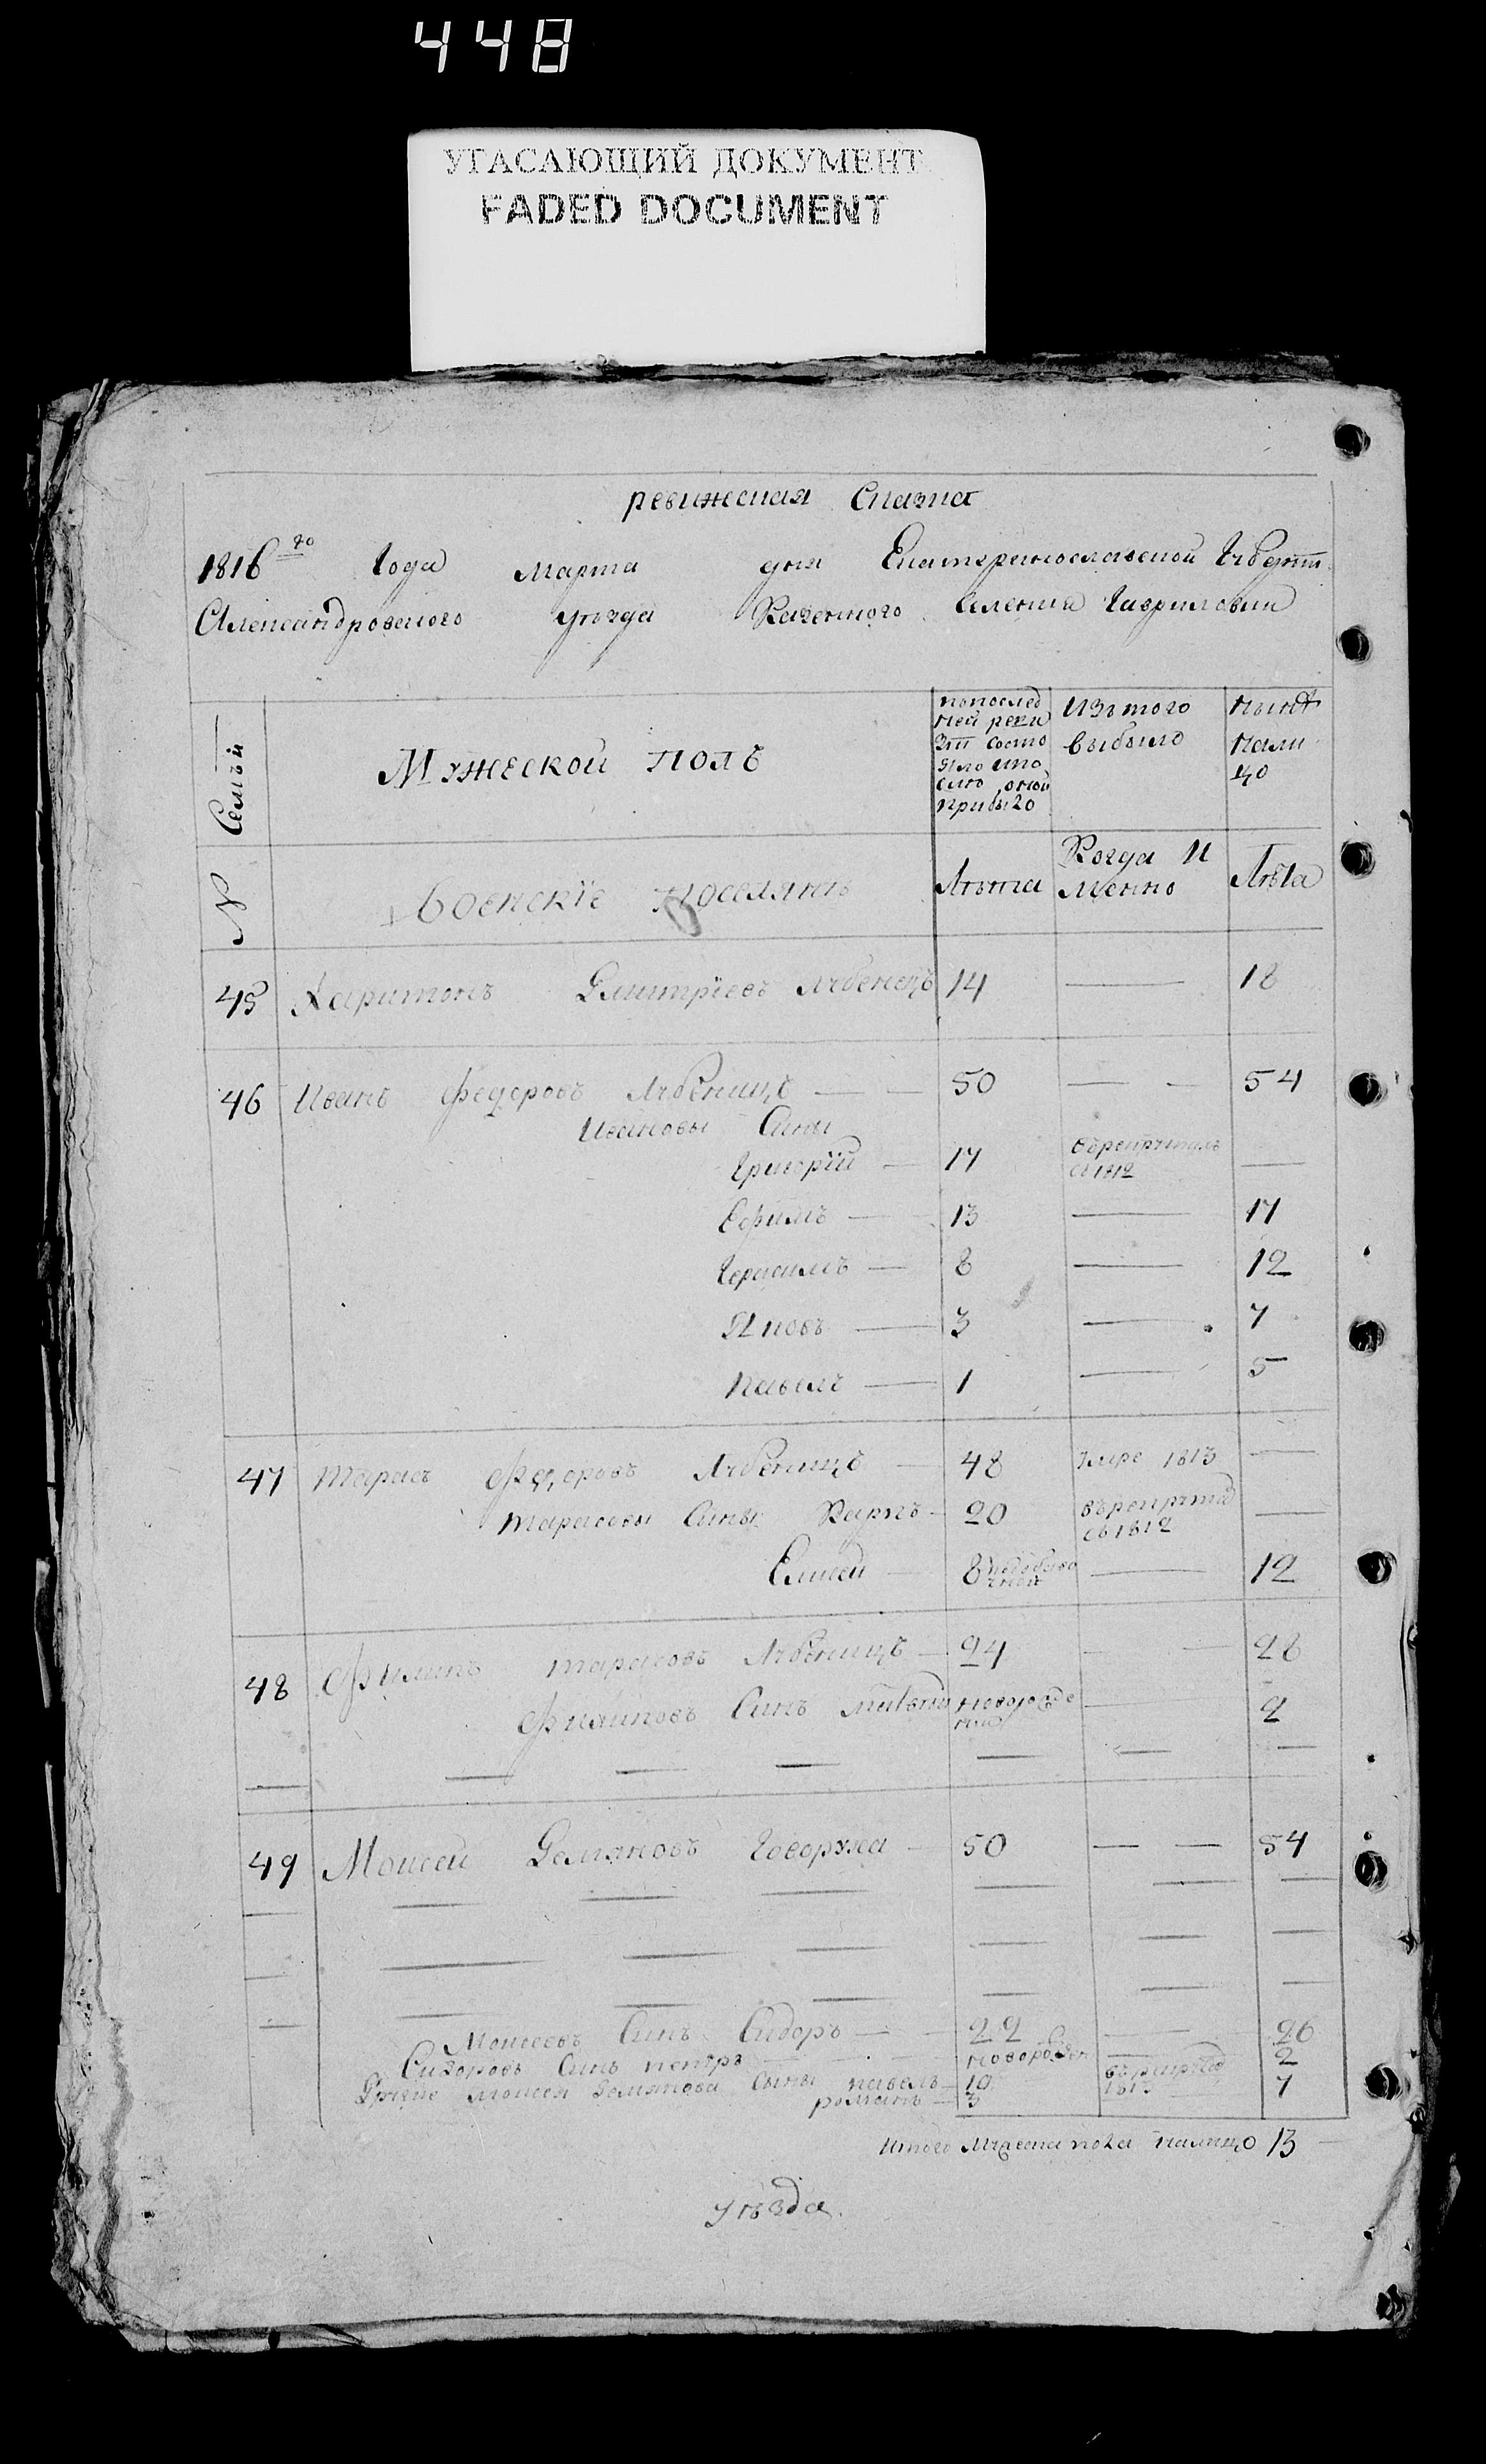 448
УГАСАЮЩИЙ ДОКУМЕНТ
FADED DOCUMENT
ревижская Сказка
1816го Года Марта дня Екатеринославской Губерт
Александровского уезда Казенного Селения Гавриловки
Семьи
Мужеской полъ
попослед ней реви зіи состо яло ипо слѣ оной прибыло
Изътого выбыло
нынѣ нали цо
№
военские поселянѣ
Лѣта
Когда И Менно
Лѣта
45 Харитонъ Дмитріевъ Лубенецъ 14 — 18
46 Иванъ Федоровъ Лубеницъ — 50 — 54
Ивановы Сыны
Григорій — 17 въ рекруты въ 1812 —
Ефимъ — 13 — 17
Герасимъ — 8 — 12
Яковъ — 3 — 7
павелъ — 1 — 5
47 Тарасъ Федоровъ Лубеницъ — 48 умре 1813 —
Тарасовы Сыны Карпъ — 20 въ 1812 —
Елисей — 8 — 12
48 Филипъ Тарасовъ Лубеницъ — 24 — 28
Филиповъ Сынъ Матвей новорожде ный — 2
49 Моисей Демяновъ Говоруха — 50 — 54
Моисеевъ Сынъ Сидоръ — 22 — 26
Сидоровъ Сынъ петръ — новорожден — 2
Моисея Демянова Сыны павелъ — 19 1813
романъ — 3 7
Итого Мужеска пола налицо 13
уѣзда